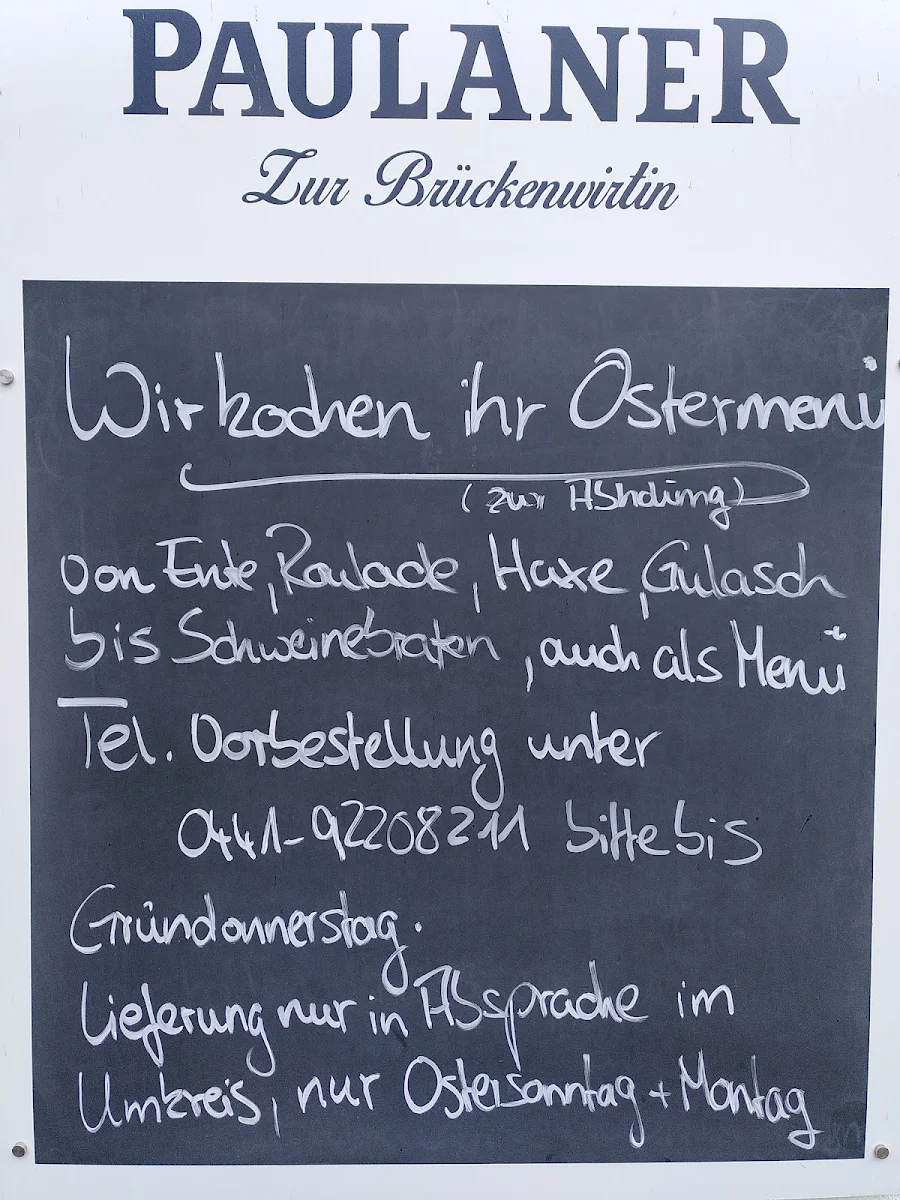 PAULANER
Zur Brückenwirtin
Wir kochen ihr Ostermenü
(zur Abholung)
von Ente, Roulade, Haxe, Gulasch
bis Schweinebraten, auch als Menü
Tel. Vorbestellung unter
0441-92208211 bitte bis
Gründonnerstag.
Lieferung nur in Absprache im
Umkreis, nur Ostersonntag + Montag